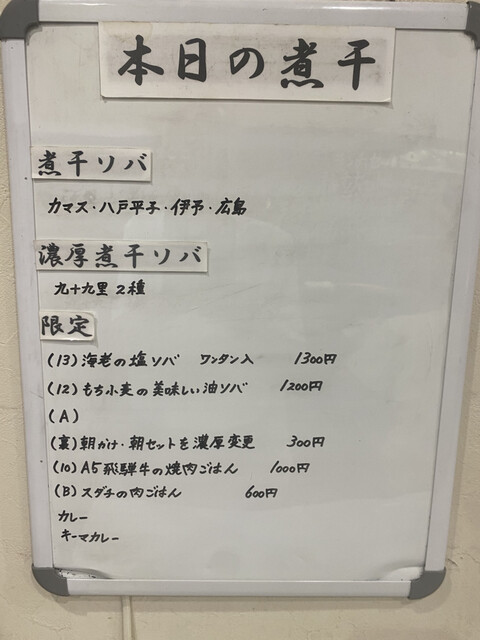 本日の煮干
煮干ソバ
カマス・八戸平子・伊予・広島
濃厚煮干ソバ
九十九里 2種
限定
(13) 海老の塩ソバ ワンタン入 1300円
(12) もち小麦の美味しい油ソバ 1200円
(A)
(裏) 朝かけ・朝セットを濃厚変更 300円
(10) A5飛騨牛の焼肉ごはん 1000円
(B) スダチの肉ごはん 600円
カレー
キーマカレー